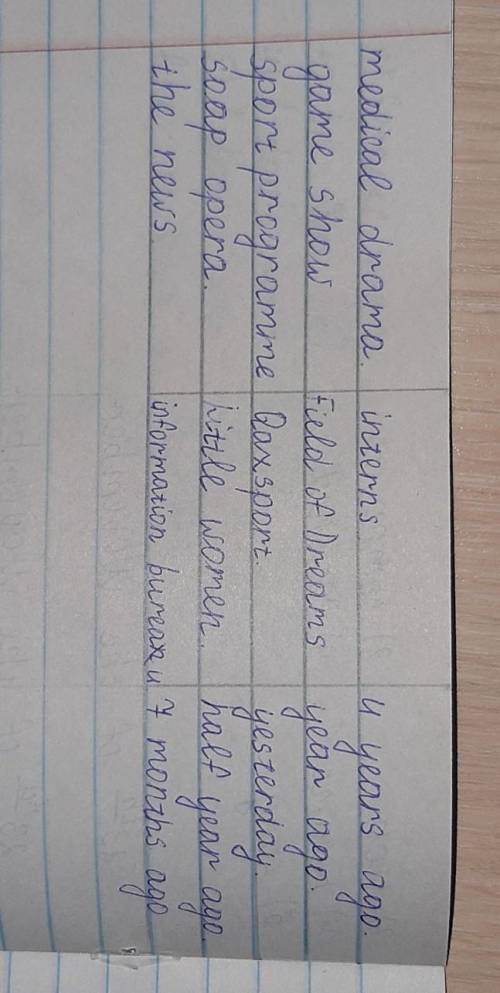 medical drama. interns. 4 years ago.
game show Field of Dreams year ago.
sport programme Qaxsport. yesterday.
soap opera. Little women. half year ago.
the news. information bureau 7 months ago